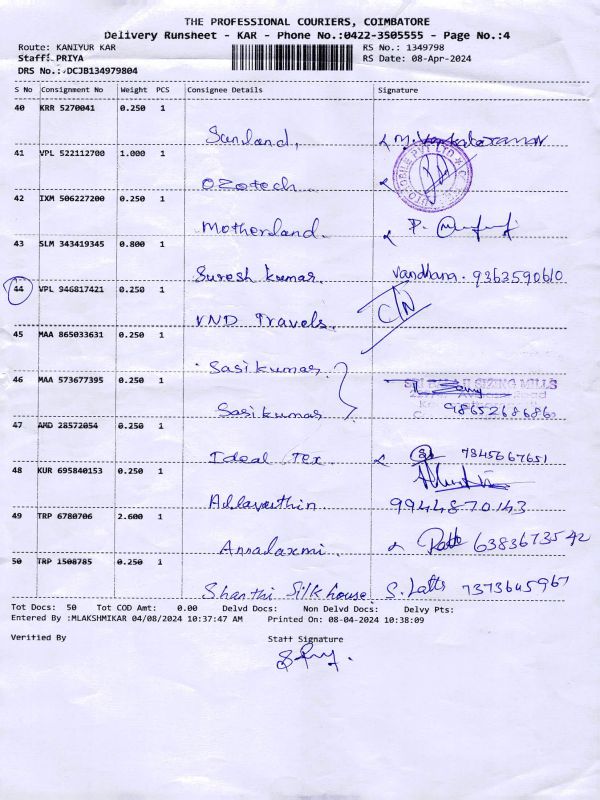 THE PROFESSIONAL COURIERS, COIMBATORE
Delivery Runsheet - KAR - Phone No.:0422-3505555 - Page No.:4
Route: KANIYUR KAR RS No.: 1349798
Staff: PRIYA RS Date: 08-Apr-2024
DRS No.:.DCJB134979804
S No Consignment No Weight PCS Consignee Details Signature
40 KRR 5270041 0.250 1
Sunland,
41 VPL 522112700 1.000 1
Ozotech
42 IXM 506227200 0.250 1
Motherland. P.
43 SLM 343419345 0.800 1
Suresh kumar. Vandhana. 9363590610
44 VPL 946817421 0.250 1
VND Travels. C/N
45 MAA 865033631 0.250 1
Sasikumar
46 MAA 573677395 0.250 1
SIZING MILLS
Road
Sasikumar 9865268686
47 AMD 28572054 0.250 1
Ideal Tex 7845667651
48 KUR 695840153 0.250 1
9944870143
49 TRP 6780706 2.600 1
Annalaxmi. 6383673542
50 TRP 1508785 0.250 1
Shanthi Silk house S. Latts 7373645967
Tot Docs: 50 Tot COD Amt: 0.00 Delvd Docs: Non Delvd Docs: Delvy Pts:
Entered By :MLAKSHMIKAR 04/08/2024 10:37:47 AM Printed On: 08-04-2024 10:38:09
Verified By Staff Signature